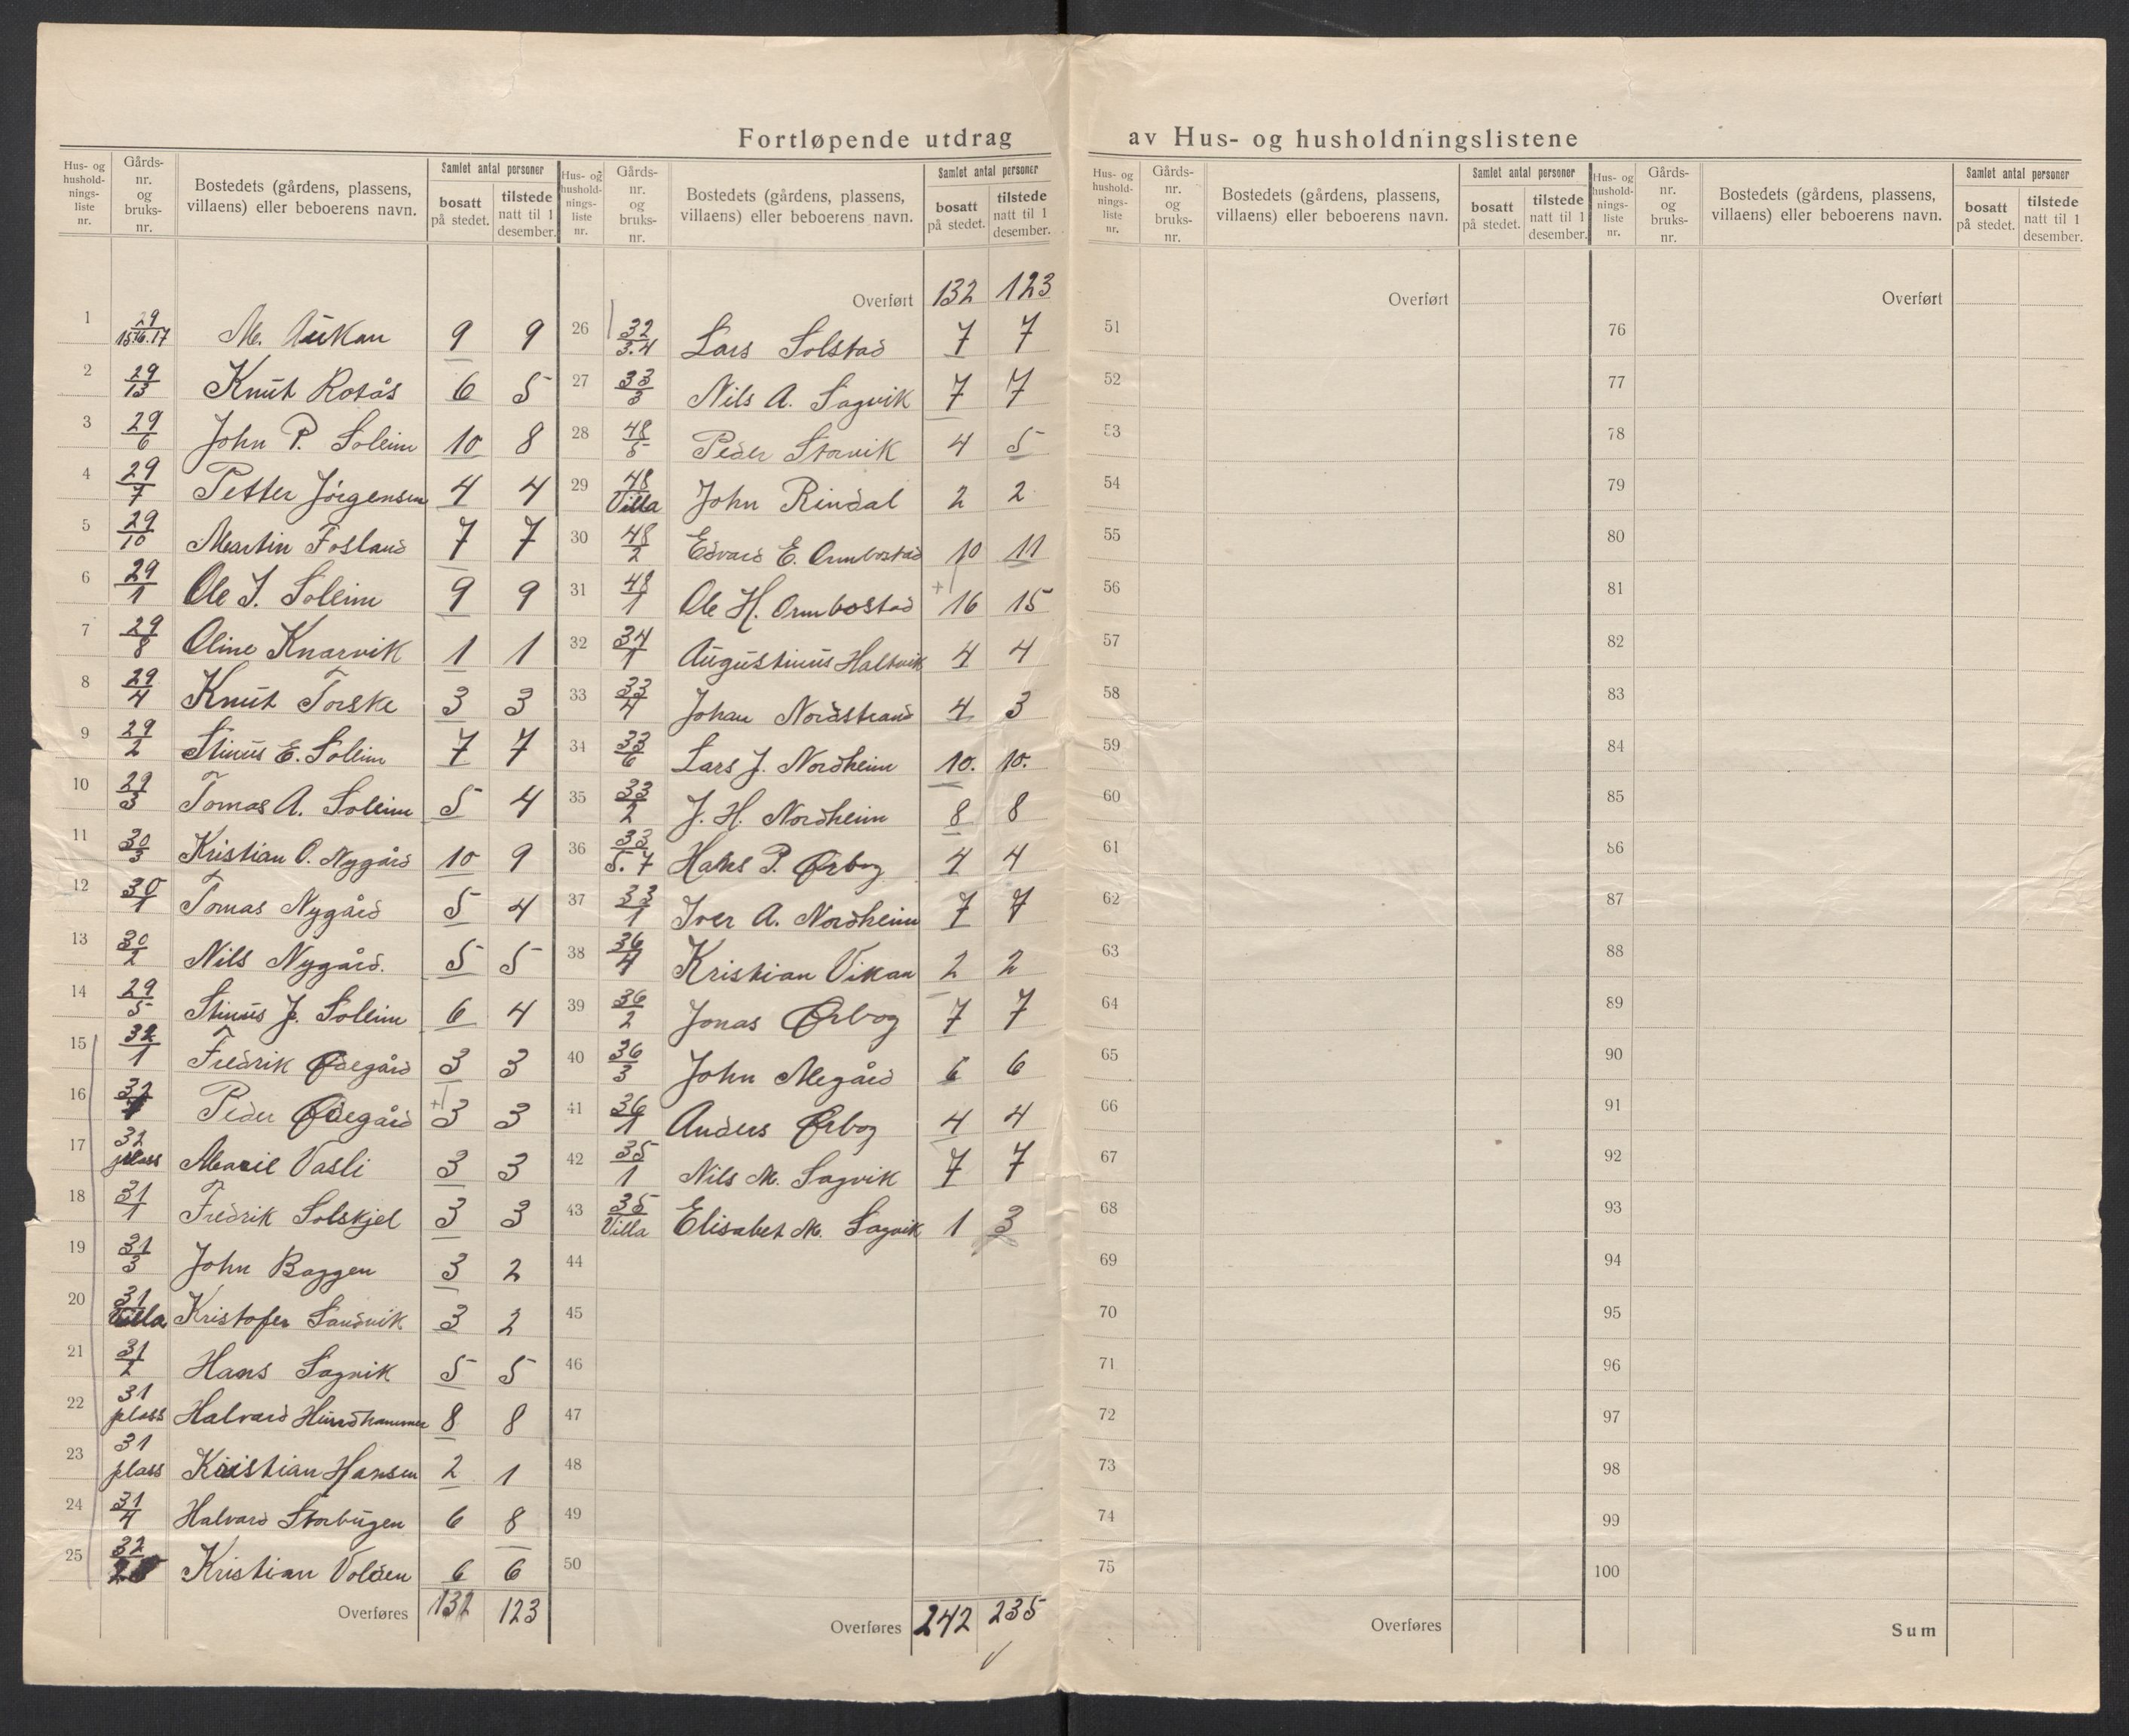 Fortløpende utdrag av Hus- og husholdningslistene
Hus- og hushold-nings-liste nr. Gårds-nr. og bruks-nr. Bostedets (gårdens, plassens, villaens) eller beboerens navn. Samlet antal personer bosatt på stedet. tilstede natt til 1 desember.
1 29/15.16.17 M. Aukan 9 9
2 29/13 Knut Rotås 6 5
3 29/6 John P. Soleim 10 8
4 29/7 Petter Jörgensen 4 4
5 29/10 Martin Fosland 7 7
6 29/1 Ole J. Soleim 9 9
7 29/8 Oline Knarvik 1 1
8 29/4 Knut Torske 3 3
9 29/2 Stinus E. Soleim 7 7
10 29/3 Tomas A. Soleim 5 4
11 30/3 Kristian O. Nygård 10 9
12 30/1 Tomas Nygård 5 4
13 30/2 Nils Nygård. 5 5
14 29/5 Stinus J. Soleim 6 4
15 32/1 Fredrik Ødegård 3 3
16 32 Peder Ødegård +1 3 3
17 32 plass Marie Vasli 3 3
18 31/1 Fredrik Solskjel 3 3
19 31/3 John Baggen 3 2
20 31 Villa Kristofer Sandvik 3 2
21 31/2 Hans Sagvik 5 5
22 31 plass Halvard Hundhammer 8 8
23 31 plass Kristian Hansen 2 1
24 31/4 Halvard Storbugen 6 8
25 32 Kristian Volden 6 6
Overføres 132 123
Hus- og hushold-nings-liste nr. Gårds-nr. og bruks-nr. Bostedets (gårdens, plassens, villaens) eller beboerens navn. Samlet antal personer bosatt på stedet. tilstede natt til 1 desember.
Overført 132 123
26 32/3.4 Lars Solstad 7 7
27 33/3 Nils A. Sagvik 7 7
28 48/5 Peder Storvik 4 5
29 48 Villa John Rindal 2 2
30 48/2 Edvard E. Ormbostad 10 11
31 48/1 Ole H. Ormbostad +1 16 15
32 34/1 Augustinus Haltvik 4 4
33 33/4 Johan Nordstrand 4 3
34 33/6 Lars J. Nordheim 10. 10.
35 33/2 J. H. Nordheim 8 8
36 33/5.7 Hans P. Ørbog 4 4
37 33/1 Iver A. Nordheim 7 7
38 36/4 Kristian Vikan 2 2
39 36/2 Jonas Ørbog 7 7
40 36/3 John Megård 6 6
41 36/1 Anders Ørbog 4 4
42 35/1 Nils M. Sagvik 7 7
43 35 Villa Elisabet M. Sagvik 1 3
44
45
46
47
48
49
50
Overføres 242 235
Hus- og hushold-nings-liste nr. Gårds-nr. og bruks-nr. Bostedets (gårdens, plassens, villaens) eller beboerens navn. Samlet antal personer bosatt på stedet. tilstede natt til 1 desember.
Overført
51
52
53
54
55
56
57
58
59
60
61
62
63
64
65
66
67
68
69
70
71
72
73
74
75
Overføres
Hus- og hushold-nings-liste nr. Gårds-nr. og bruks-nr. Bostedets (gårdens, plassens, villaens) eller beboerens navn. Samlet antal personer bosatt på stedet. tilstede natt til 1 desember.
Overført
76
77
78
79
80
81
82
83
84
85
86
87
88
89
90
91
92
93
94
95
96
97
98
99
100
Sum